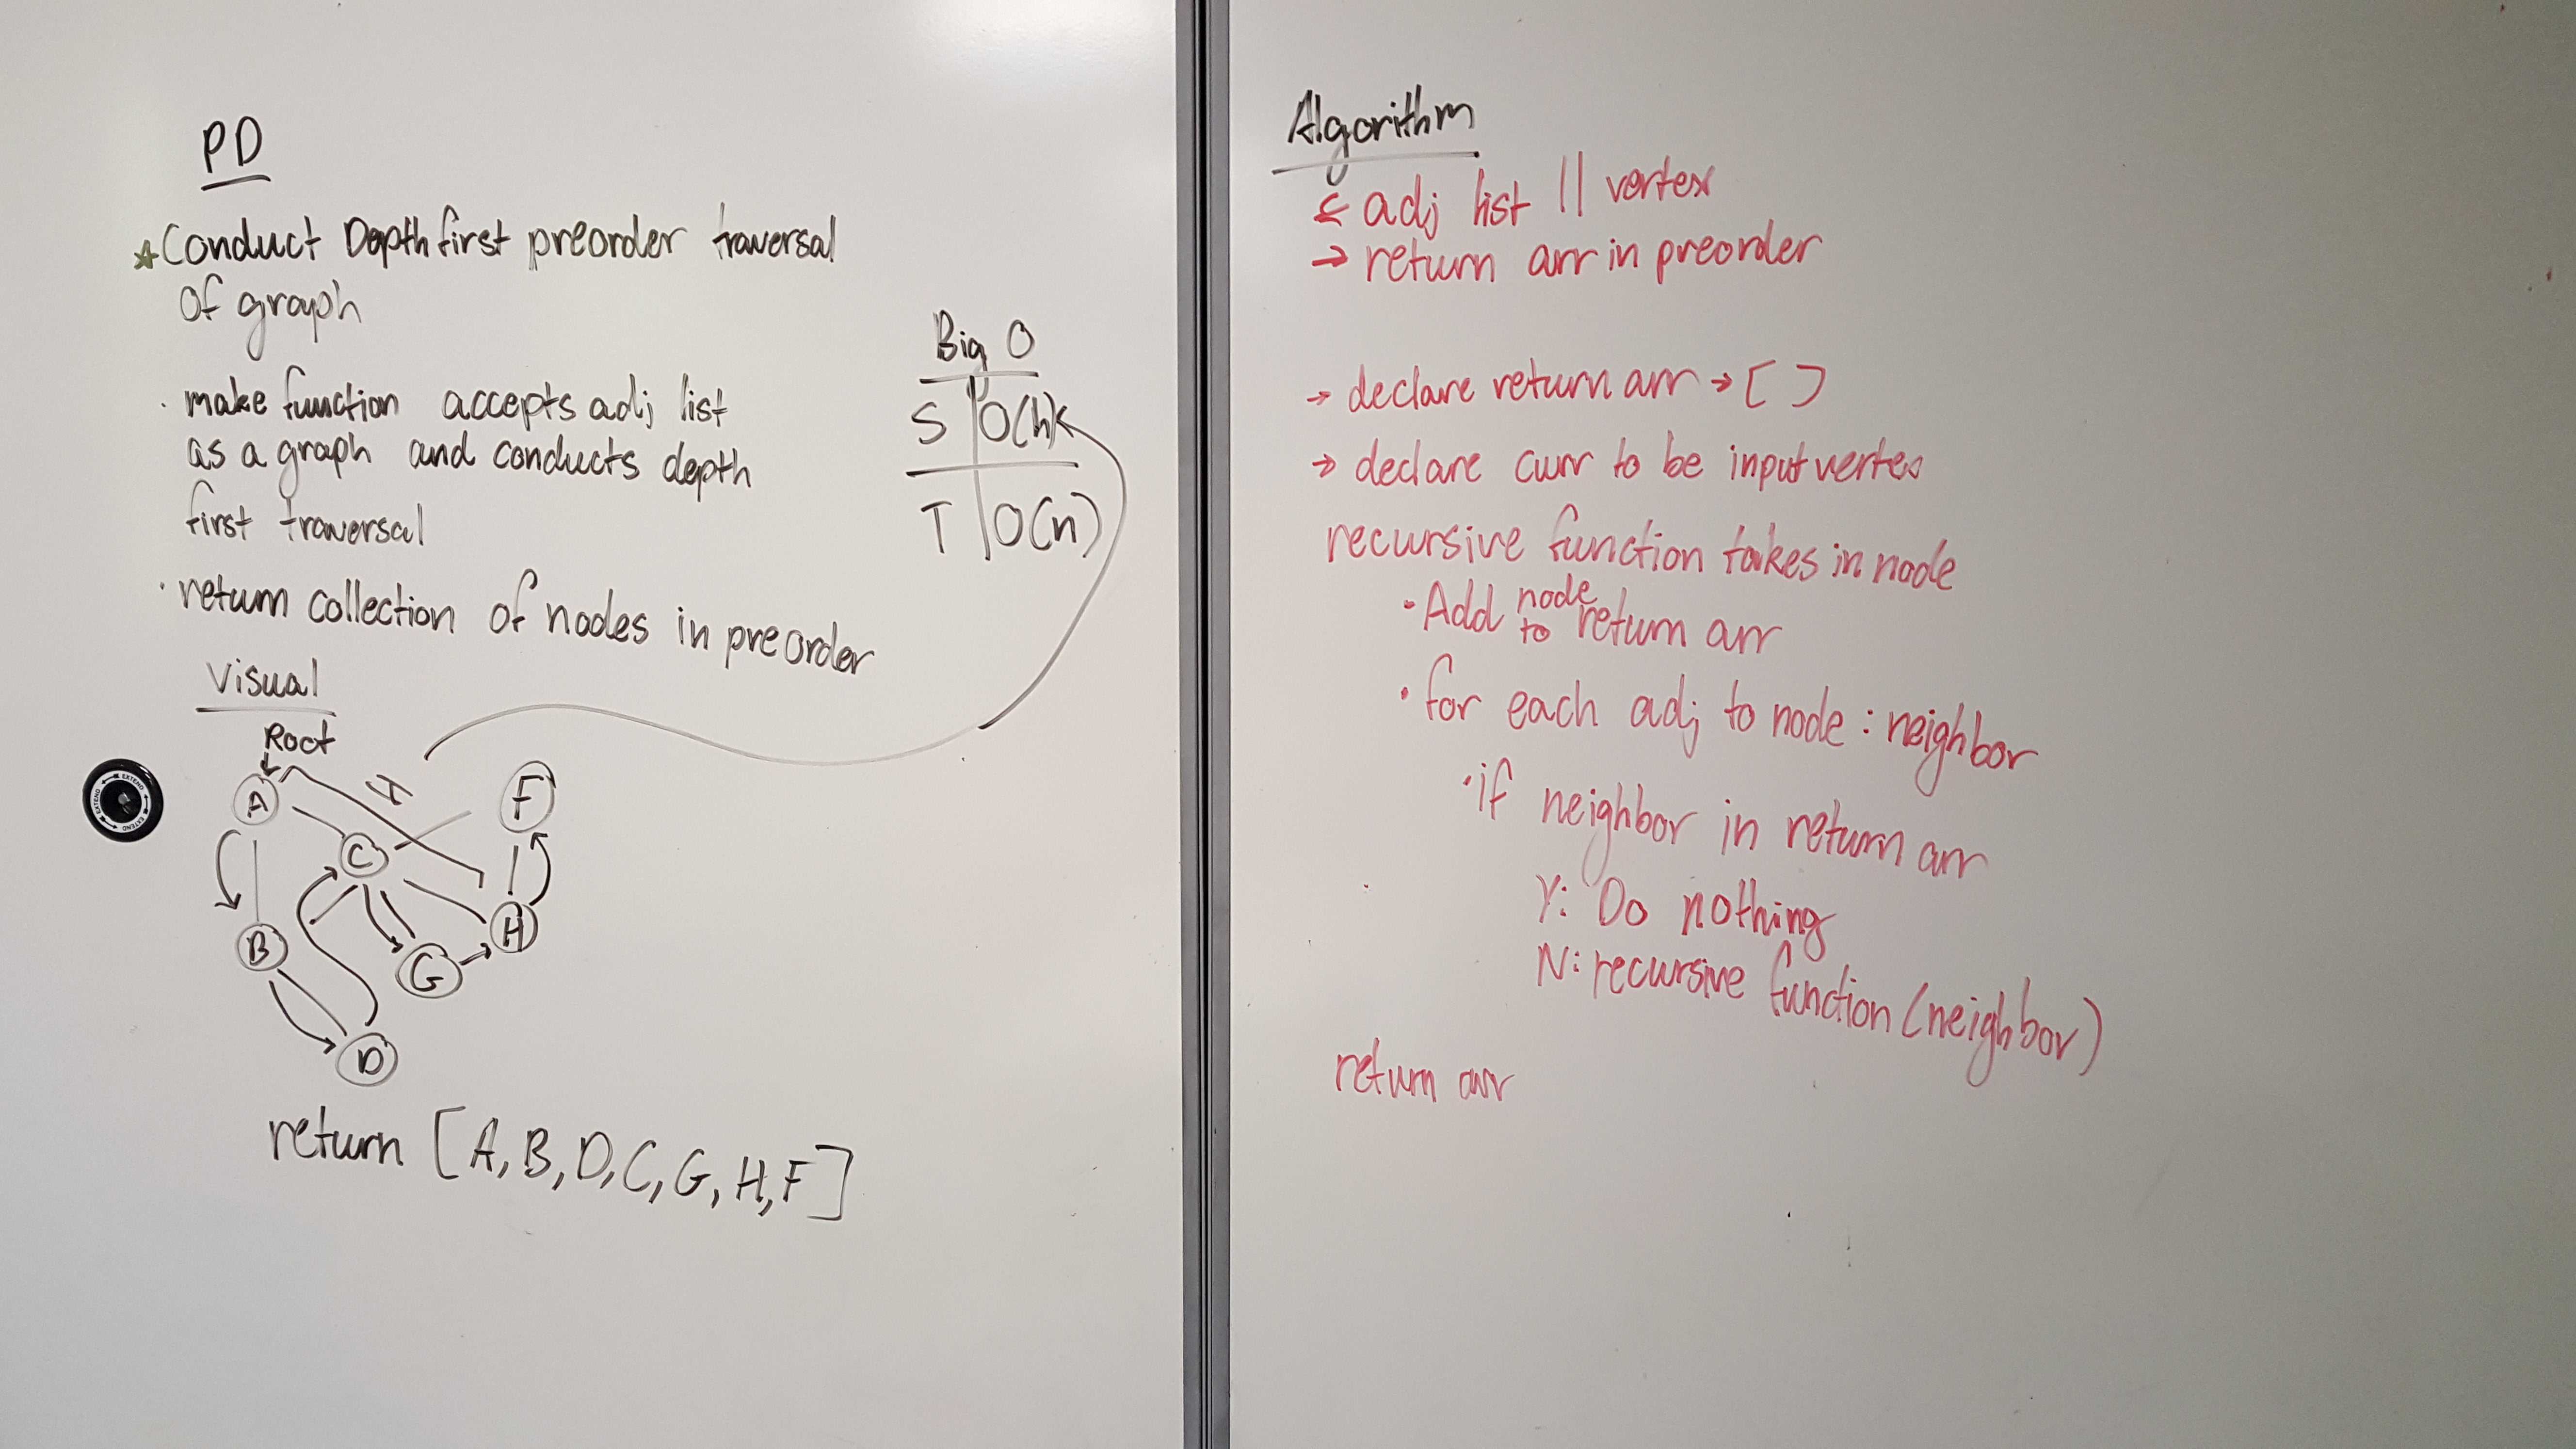 PD
Conduct Depth first preorder traversal
of graph
· make function accepts adj list
as a graph and conducts depth
first traversal
· return collection of nodes in preorder
Big O
S O(h)
T O(n)
Visual
Root
A
H
F
C
B
G
H
D
EXTEND EXTEND EXTEND
return [A, B, D, C, G, H, F]
Algorithm
← adj list || vertex
→ return arr in preorder
→ declare return arr → [ ]
→ declare curr to be input vertex
recursive function takes in node
· Add node to return arr
· for each adj to node : neighbor
· if neighbor in return arr
Y: Do nothing
N: recursive function (neighbor)
return arr